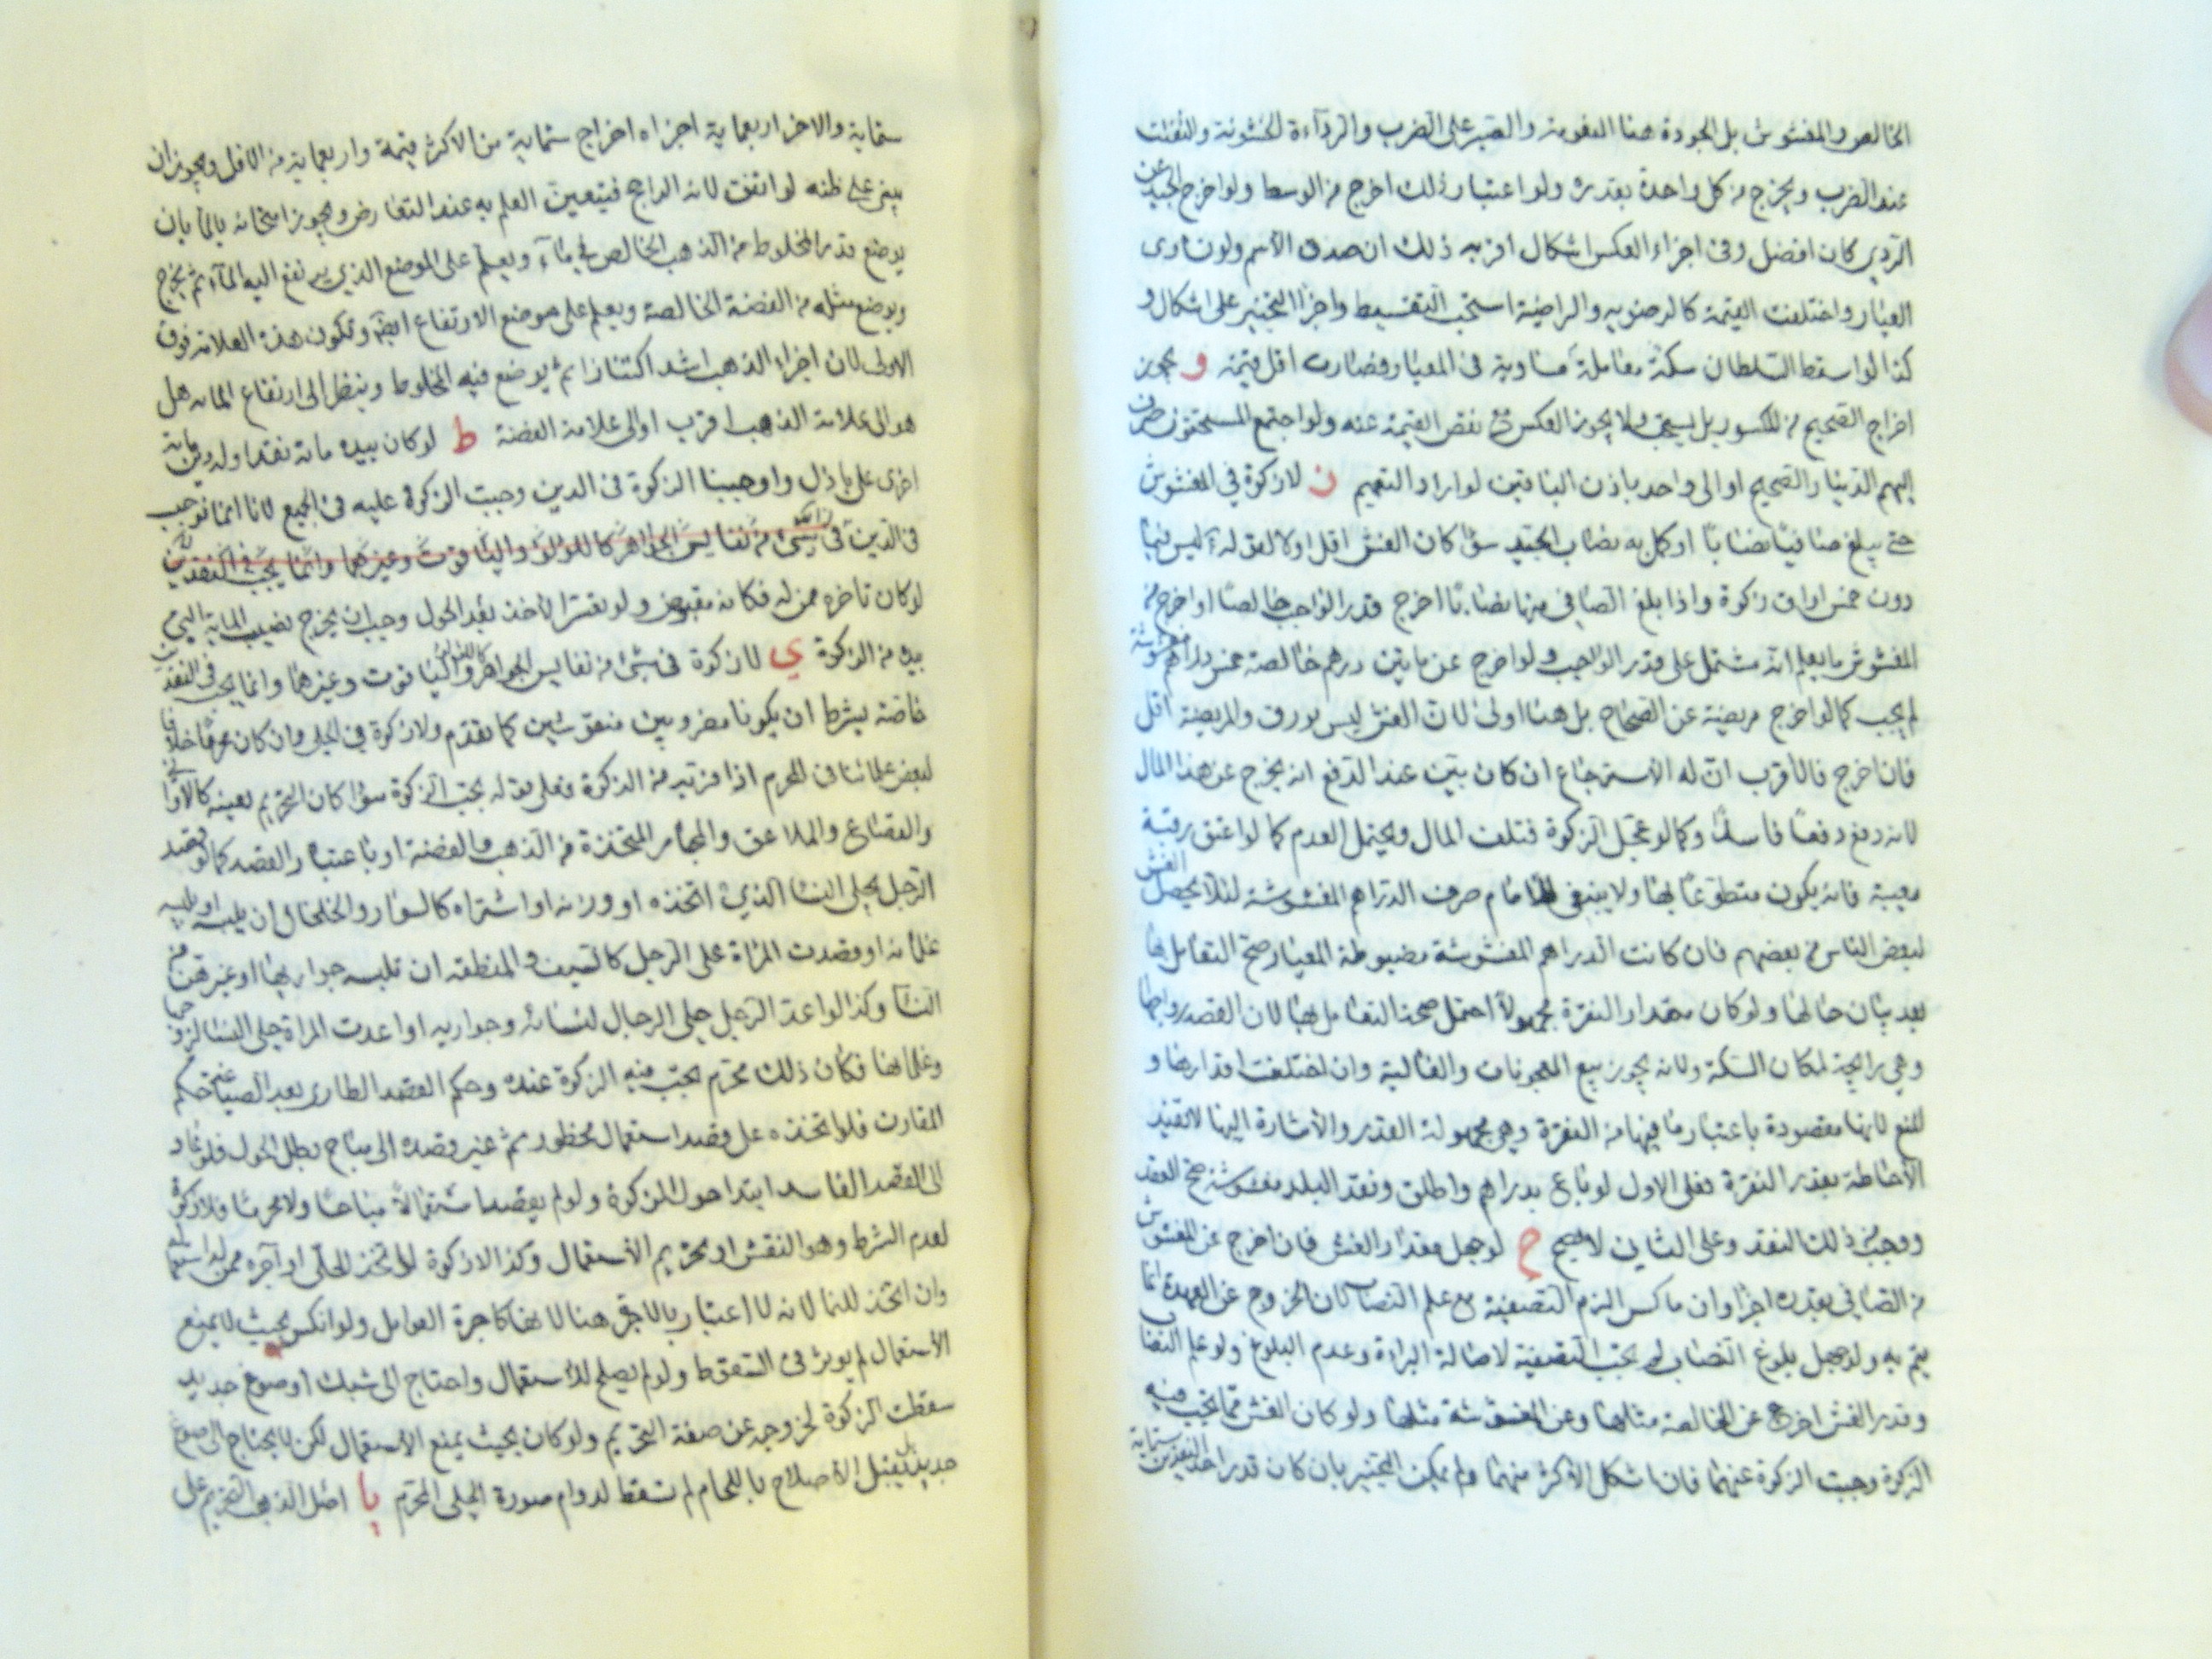 الخالص والمغشوش بل الجودة هنا النعومة والصبر على الضرب والرداءة الخشونة والتفتت
عند الضرب ويخرج من كل واحدة بقدره ولو اعتبار ذلك اخرج من الوسط ولو اخرج الجيد عن
الردي كان افضل وفى اجزاء العكس اشكال اقربه ذلك ان صدق الاسم ولو تساوى
العيار واختلفت القيمة كالرضويه والراضية استحب التقسيط واجزا التخيير على اشكال و
كذا لو اسقط السلطان سكة معاملة مساوية فى المعيار وصارت اقل قيمة و يجوز
اخراج الصحيح من المكسور بل يستحب ولا يجوز العكس مع نقص القيمة عنه ولو اجتمع المستحقون صرف
إليهم الدينار الصحيح او الى واحد باذن الباقين لو اراد التعميم ز لا زكوة في المغشوش
حتى يبلغ صافيا نصابا او كمل به نصاب الجيد سوا كان الغش اقل اولا لقوله ع ليس فيما
دون خمس اواق زكوة واذا بلغ الصافى منها نصابا اخرج قدر الواجب خالصا او اخرج من
المغشوش ما يعلم انه مشتمل على قدر الواجب ولو اخرج عن مايتين درهم خالصة خمس دراهم مغشوشة
لم يجب كما لو اخرج مريضة عن الصحاح بل هنا اولى لان الغش ليس بورق والمريضة اقل
فان اخرج فالاقرب ان له الاسترجاع ان كان بين عند الدفع انه يخرج عن هذا المال
لانه دفع دفعا فاسدا وكما لو عجل الزكوة فتلف المال ويحتمل العدم كما لو اعتق رقبة
معيبة فانه يكون متطوعا بها ولا ينبغى للامام صرف الدراهم المغشوشة لئلا يحصل الغش
لبعض الناس من بعضهم فان كانت الدراهم المغشوشة مضبوطة المعيار صح التعامل بها
بعد بيان حالها ولو كان مقدار النقرة مجهولا احتمل صحة التعامل بها لان القصد رواجها
وهي رايجة لمكان السكة ولانه يجوز بيع المعجونات والغالية وان اختلفت اقدارها و
المنع لانها مقصودة باعتبار ما فيها من النقرة وهى مجهولة القدر والاشارة اليها لا تفيد
الاحاطة بقدر النقرة فعلى الاول لو باع بدراهم واطلق ونقد البلد مغشوشة صح العقد
ووجب من ذلك النقد وعلى الثانى لا يصح ح لو جهل مقدار الغش فان اخرج عن المغشوش
من الصافي بقدره اجزا وان ماكس الزم التصفية مع علم النصاب لان الخروج عن العهدة انما
يتم به ولو جهل بلوغ النصاب لم يجب التصفية لاصالة البراءة وعدم البلوغ ولو علم النصاب
وقدر الغش اخرج عن الخالصة مثلها وعن المغشوشة مثلها ولو كان الغش مما تجب فيه
الزكوة وجبت الزكوة عنهما فان اشكل الاكثر منهما ولم يمكن التخيير بان كان قدر احد النقدين ستماية
ستماية والاخر اربعماية اجزاه اخراج ستماية من الاكثر قيمة واربعماية من الاقل ويجوز ان
يبنى على ظنه لو اتفق لانه الراجح فيتعين العلم به عند التعارض ويجوز امتحانه بالماء بان
يوضع قدر المخلوط من الذهب الخالص في ماء ويعلم على الموضع الذي يرتفع اليه الماء ثم يخرج
ويوضع مثله من الفضة الخالصة ويعلم على موضع الارتفاع ايضا وتكون هذه العلامة فوق
الاولى لان اجزاء الذهب اشد اكتنازا ثم يوضع فيه المخلوط وينظر الى ارتفاع الماء به هل
هو الى علامة الذهب اقرب او الى علامة الفضة ط لو كان بيده ماية نقدا وله دين ماية
اخرى على باذل واوجبنا الزكوة فى الدين وجبت الزكوة عليه فى الجميع لانا انما نوجب
فى الدين فى شئ من نفايس الجواهر كاللولو والياقوت وغيرهما وانما يجب فى النقدين
لو كان تاخره ممن له فكانه مقبوض ولو تعسر الاخذ بعد الحول وجب ان يخرج نصيب الماية التي في
يده من الزكوة ي لا زكوة فى شئ من نفايس الجواهر كاللولو والياقوت وغيرهما وانما يجب فى النقدين
خاصة بشرط ان يكونا مضروبين منقوشين كما تقدم ولا زكوة فى الحلى وان كان محرما خلافا
لبعض علمائنا فى المحرم اذا فر به من الزكوة فعلى قوله تجب الزكوة سوا كان التحريم بعينه كالاوانى
والقصاع والملاعق والمجامر المتخذة من الذهب والفضة او باعتبار القصد كما لو قصد
الرجل بحلى النسا الذي اتخذه او ورثه او اشتراه كالسوار والخلخال ان يلبسه او يلبسه
غلمانه او قصدت المراة على الرجل كالسيف والمنطقه ان تلبسه جواريها او غيرهن من
النسا وكذا لو اعد الرجل حلى الرجال لنسائه وجواريه او اعدت المراة حلى النسا لزوجها
وغلمانها فكان ذلك محرم يجب فيه الزكوة عنده وحكم القصد الطارى بعد الصياغة حكم
المقارن فلو اتخذه على قصد استعمال محظور ثم غير قصده الى مباح بطل الحول فلو عاد
الى القصد الفاسد ابتدا حول الزكوة ولو لم يقصد استعمالا مباحا ولا محرما فلا زكوة
لعدم الشرط وهو النقش او تحريم الاستعمال وكذا لا زكوة لو اتخذ الحلى او آجره ممن له استعماله
وان اتخذ للنما لانه لا اعتبار بالاجرة هنا لانها كاجرة العوامل ولو انكسر بحيث لا يمنع
الاستعمال لم يوثر فى السقوط ولو لم يصلح للاستعمال واحتاج الى سبك او صوغ جديد
سقطت الزكوة لخروجه عن صفة التحريم ولو كان بحيث يمنع الاستعمال لكن لا يحتاج الى صوغ
جديد بل يقبل الاصلاح باللحام لم تسقط لدوام صورة الحلى المحرم يا اصل الذهب التحريم على